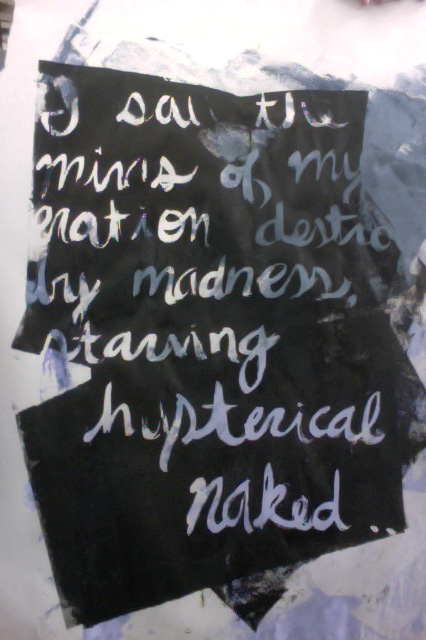 I saw the
minds of my
eration destro
by madness,
starving
hysterical
naked..